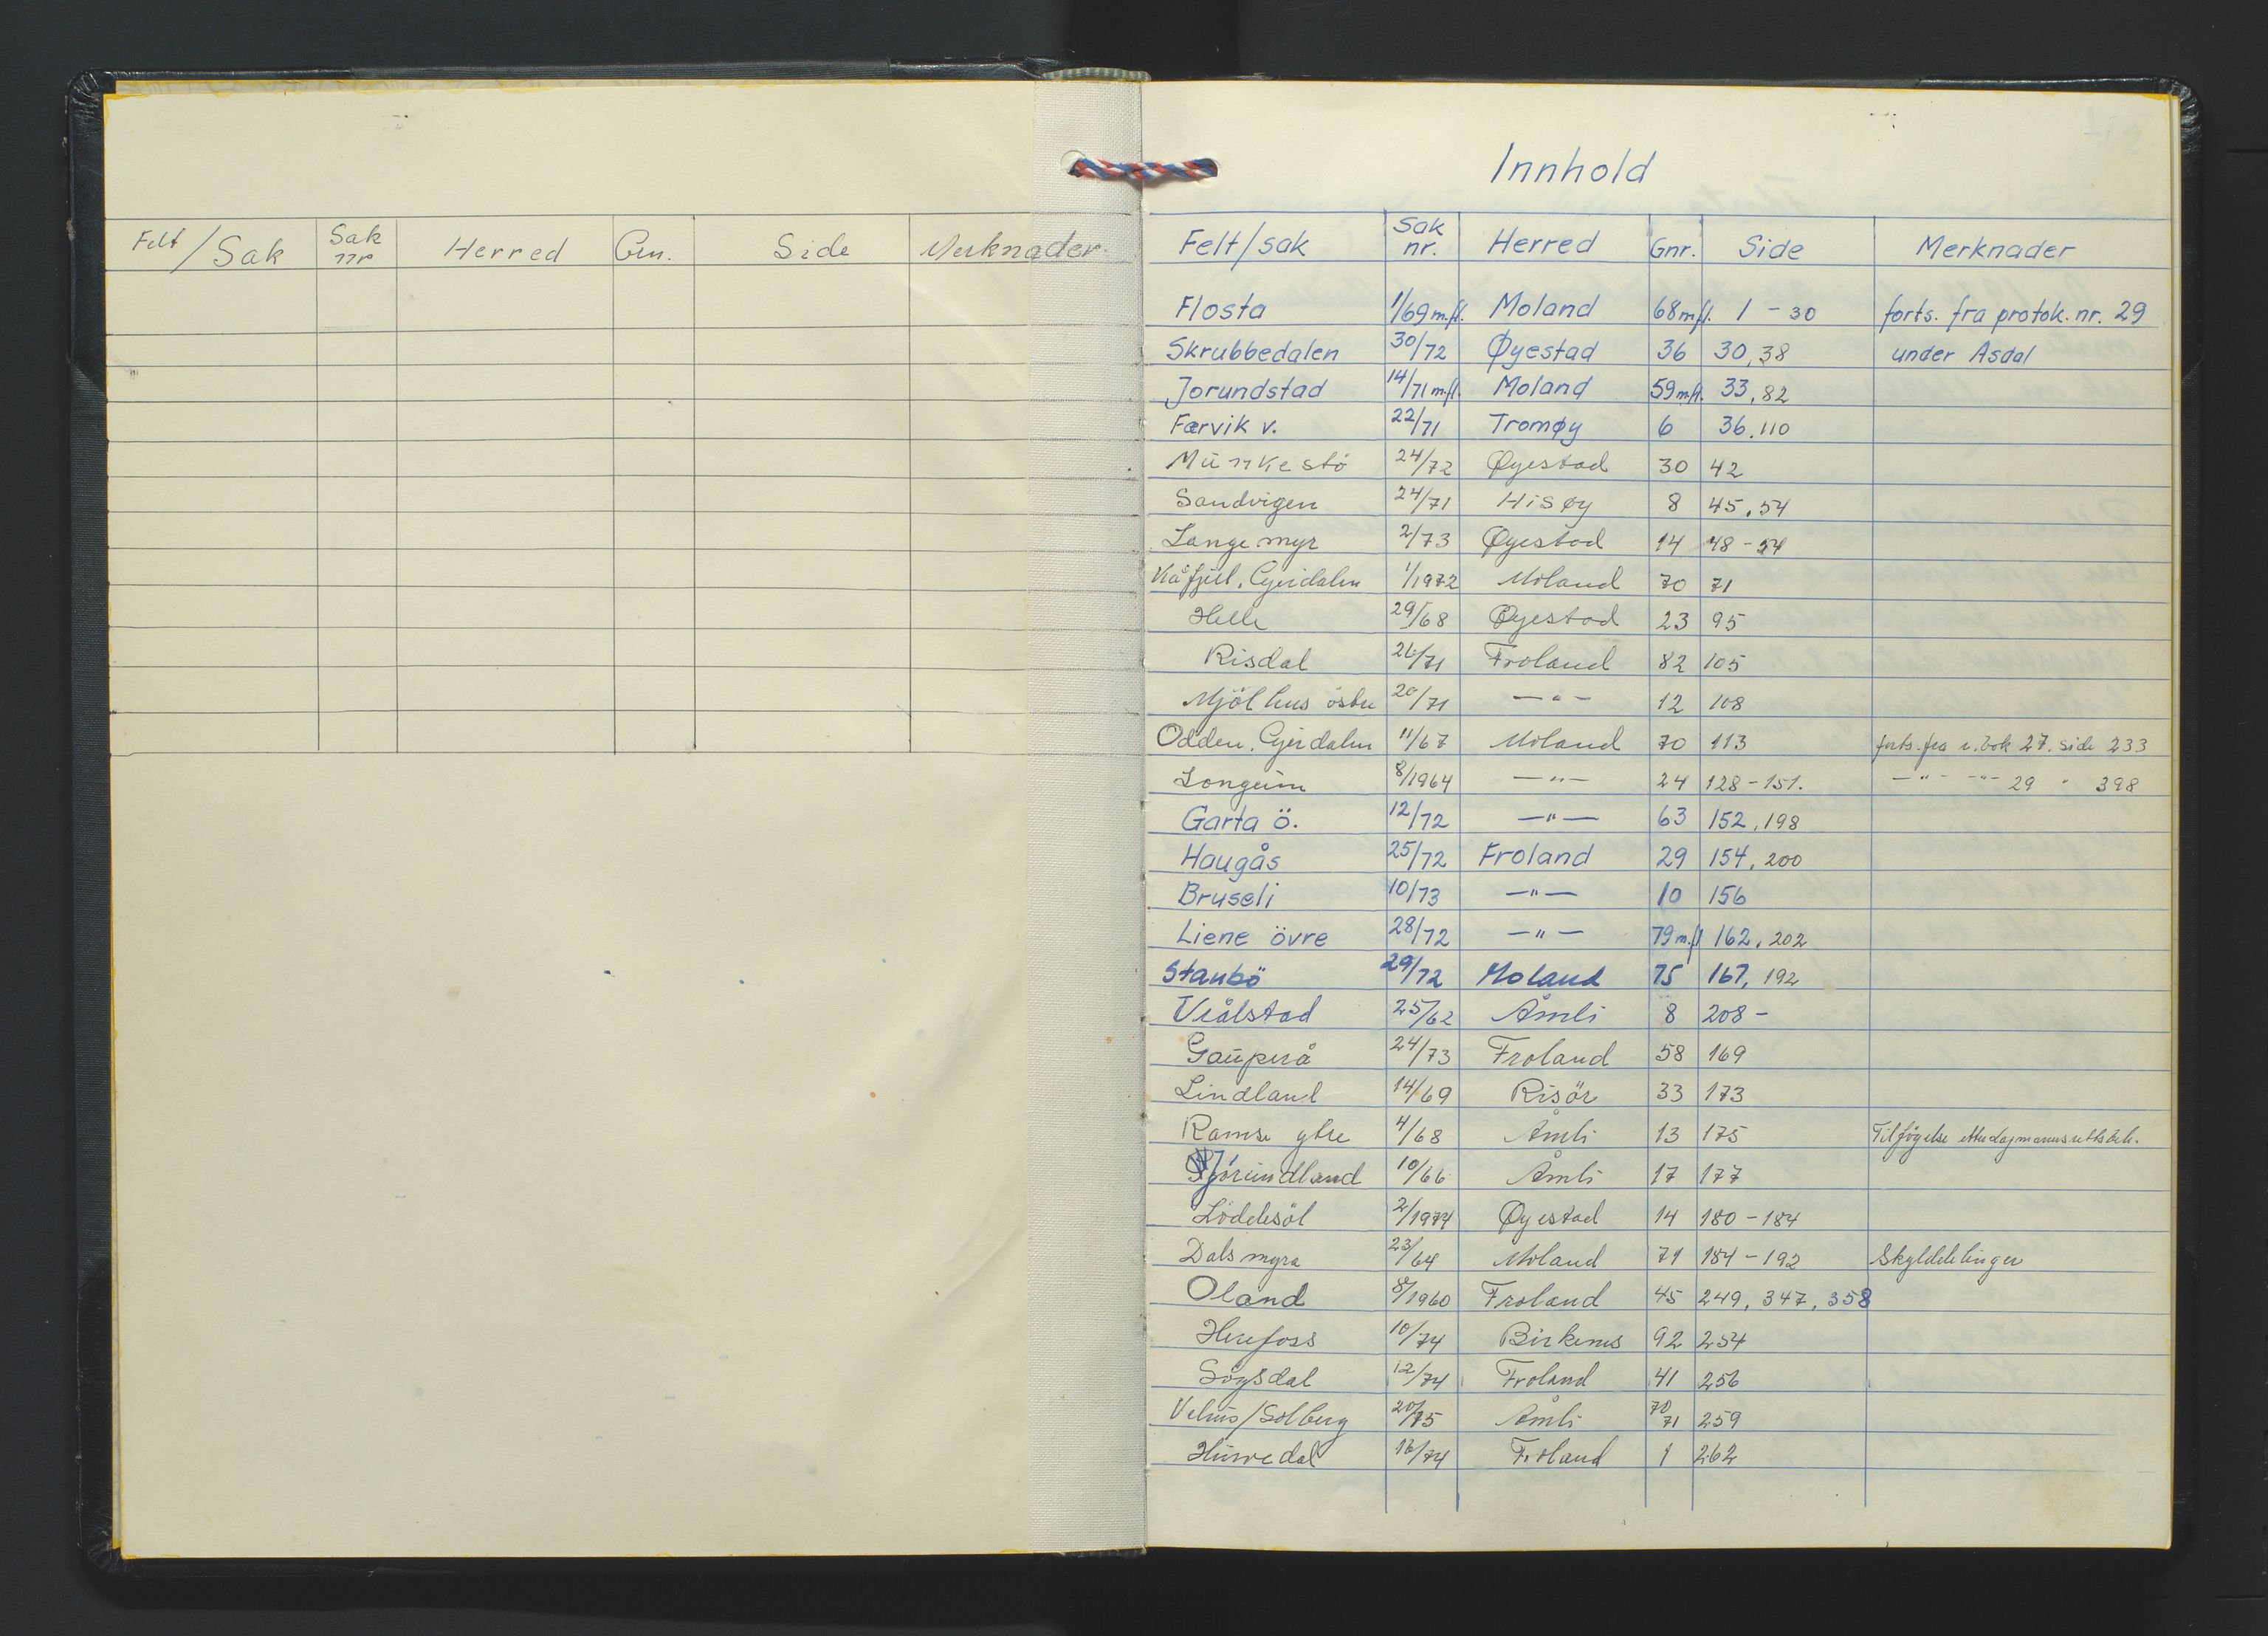 Felt/Sak Sak nr Herred Gnr. Side Merknader
Innhold
Felt/sak Sak nr. Herred Gnr. Side Merknader
Flosta 1/69 m.fl. Moland 68 m.fl. 1 - 30 forts. fra protok. nr. 29
Skrubbedalen 30/72 Øyestad 36 30, 38 under Asdal
Jorundstad 14/71 m.fl. Moland 59 m.fl. 33, 82
Færvik v. 22/71 Tromøy 6 36, 110
Munkestö 24/72 Øyestad 30 42
Sandvigen 24/71 Hisøy 8 45, 54
Langemyr 2/73 Øyestad 14 48 - 54
Kåfjell, Gjeirdalen 1/1972 Moland 70 71
Helle 29/68 Øyestad 23 95
Risdal 26/71 Froland 82 105
Mjölhus östre 20/71 — " — 12 108
Odden, Gjeirdalen 11/67 Moland 70 113 forts. fra r.bok 27. side 233
Longum 8/1964 — " — 24 128 - 151. — " — — " — 29 " 398
Garta ö. 12/72 — " — 63 152, 198
Haugås 25/72 Froland 29 154, 200
Bruseli 10/73 — " — 10 156
Liene övre 28/72 — " — 79 m.fl 162, 202
Staubö 29/72 Moland 75 167, 192
Viålstad 25/62 Åmli 8 208 -
Gauperå 24/73 Froland 58 169
Lindland 14/69 Risör 33 173
Ramse ytre 4/68 Åmli 13 175 Tilföyelse etter lagmannsrettsbeh.
Jörundland 10/66 Åmli 17 177
Löddesöl 2/1974 Øyestad 14 180 - 184
Dalsmyra 23/64 Moland 71 184 - 192 Skylddelinger
Oland 8/1960 Froland 45 249, 347, 358
Herefoss 10/74 Birkenes 92 254
Sögsdal 12/74 Froland 41 256
Vehus/Solberg 20/75 Åmli 70 71 259
Hurvedal 16/74 Froland 1 262